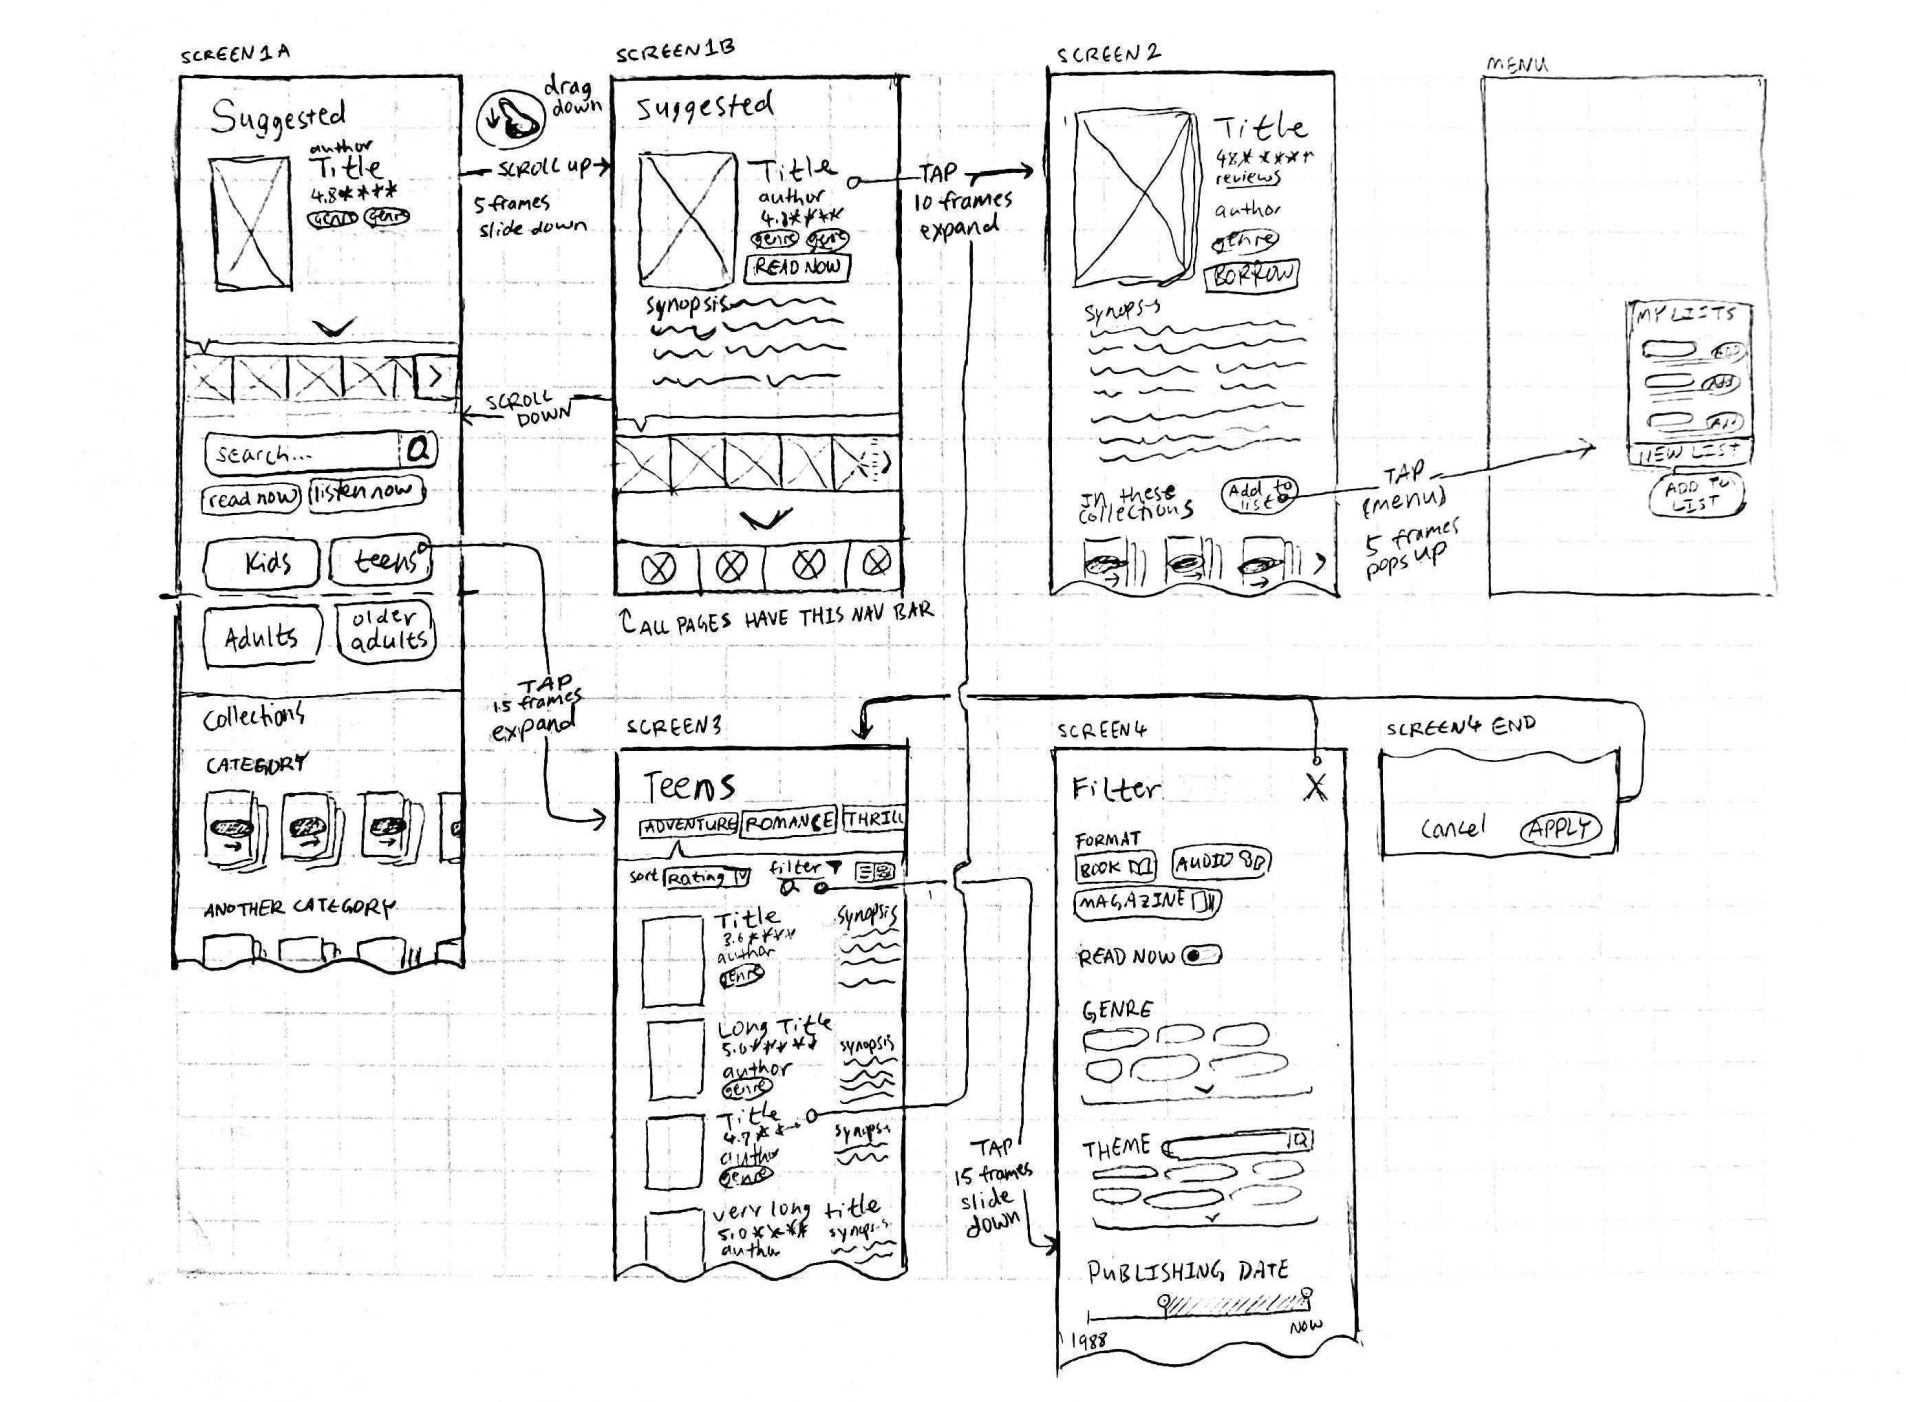 SCREEN 1A
Suggested
author
Title
4.8****
genre genre
>
search...
read now listen now
Kids teens
Adults older
adults
Collections
CATEGORY
ANOTHER CATEGORY
drag
down
SCROLL UP
5 frames
slide down
SCROLL
DOWN
TAP
15 frames
expand
SCREEN 1B
Suggested
Title
author
4.8****
genre genre
READ NOW
synopsis
ALL PAGES HAVE THIS NAV BAR
TAP
10 frames
expand
SCREEN 2
Title
4.8*****
reviews
author
genre
BORROW
Synopsis
In these
collections
Add to
list
TAP
(menu)
5 frames
pops up
MENU
MY LISTS
ADD
Add
Add
NEW LIST
ADD TO
LIST
SCREEN 3
Teens
ADVENTURE ROMANCE THRILL
sort Rating filter
Title synopsis
3.6****
author
genre
LONG TITLE
5.0***** synopsis
author
genre
Title
4.7** synopsis
author
genre
very long title
5.0**** synopsis
author
TAP
15 frames
slide
down
SCREEN 4
Filter X
FORMAT
BOOK AUDIO
MAGAZINE
READ NOW
GENRE
THEME
PUBLISHING DATE
1988 NOW
SCREEN 4 END
Cancel APPLY